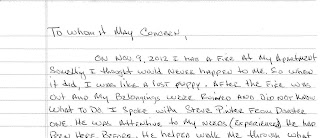 To whom it May Concern,
ON NOV. 9, 2012 I had a fire at my Apartment
Something I thought would never happen to me. So when
it did, I was like a lost puppy. After the fire was
out And My Belongings were Ruined AND Did not know
what to do. I spoke with Steve Pinter From Disaster
ONE. He was Attentive to my needs (Experience) He had
Been Here Before. He helped walk me through what